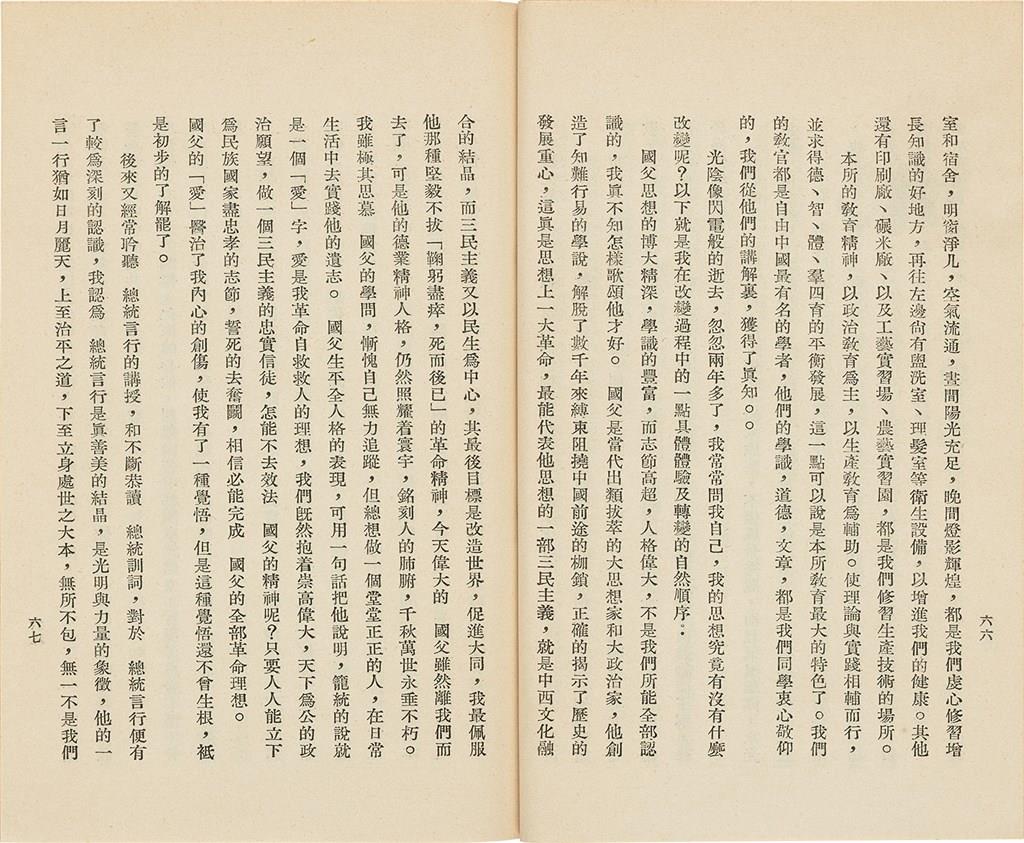 室和宿舍，明窗淨儿，空氣流通，晝間陽光充足，晚間燈影輝煌，都是我們虛心修習增
長知識的好地方，再往左邊尙有盥洗室、理髮室等衛生設備，以增進我們的健康。其他
還有印刷廠、碾米廠、以及工藝實習場、農藝實習園，都是我們修習生產技術的場所。
本所的敎育精神，以政治敎育爲主，以生產敎育爲輔助。使理論與實踐相輔而行，
並求得德、智、體、羣四育的平衡發展，這一點可以說是本所敎育最大的特色了。我們
的敎官都是自由中國最有名的學者，他們的學識，道德，文章，都是我們同學衷心敬仰
的，我們從他們的講解裏，獲得了眞知。。
光陰像閃電般的逝去，忽忽兩年多了，我常常問我自己，我的思想究竟有沒有什麼
改變呢？以下就是我在改變過程中的一點具體體驗及轉變的自然順序：
國父思想的博大精深，學識的豐富，而志節高超，人格偉大，不是我們所能全部認
識的，我眞不知怎樣歌頌他才好。　國父是當代出類拔萃的大思想家和大政治家，他創
造了知難行易的學說，解脫了數千年來縛束阻撓中國前途的枷鎖，正確的揭示了歷史的
發展重心，這眞是思想上一大革命，最能代表他思想的一部三民主義，就是中西文化融
六六
合的結晶，而三民主義又以民生爲中心，其最後目標是改造世界，促進大同，我最佩服
他那種堅毅不拔「鞠躬盡瘁，死而後已」的革命精神，今天偉大的　國父雖然離我們而
去了，可是他的德業精神人格，仍然照耀着寰宇，銘刻人的肺腑，千秋萬世永垂不朽。
我雖極其思慕　國父的學問，慚愧自己無力追蹤，但總想做一個堂堂正正的人，在日常
生活中去實踐他的遺志。　國父生平全人格的表現，可用一句話把他說明，籠統的說就
是一個「愛」字，愛是我革命自救救人的理想，我們旣然抱着崇高偉大，天下爲公的政
治願望，做一個三民主義的忠實信徒，怎能不去效法　國父的精神呢？只要人人能立下
爲民族國家盡忠孝的志節，誓死的去奮鬭，相信必能完成　國父的全部革命理想。
國父的「愛」醫治了我內心的創傷，使我有了一種覺悟，但是這種覺悟還不曾生根，祗
是初步的了解罷了。
後來又經常聆聽　總統言行的講授，和不斷恭讀　總統訓詞，對於　總統言行便有
了較爲深刻的認識，我認爲　總統言行是眞善美的結晶，是光明與力量的象徵，他的一
言一行猶如日月麗天，上至治平之道，下至立身處世之大本，無所不包，無一不是我們
六七